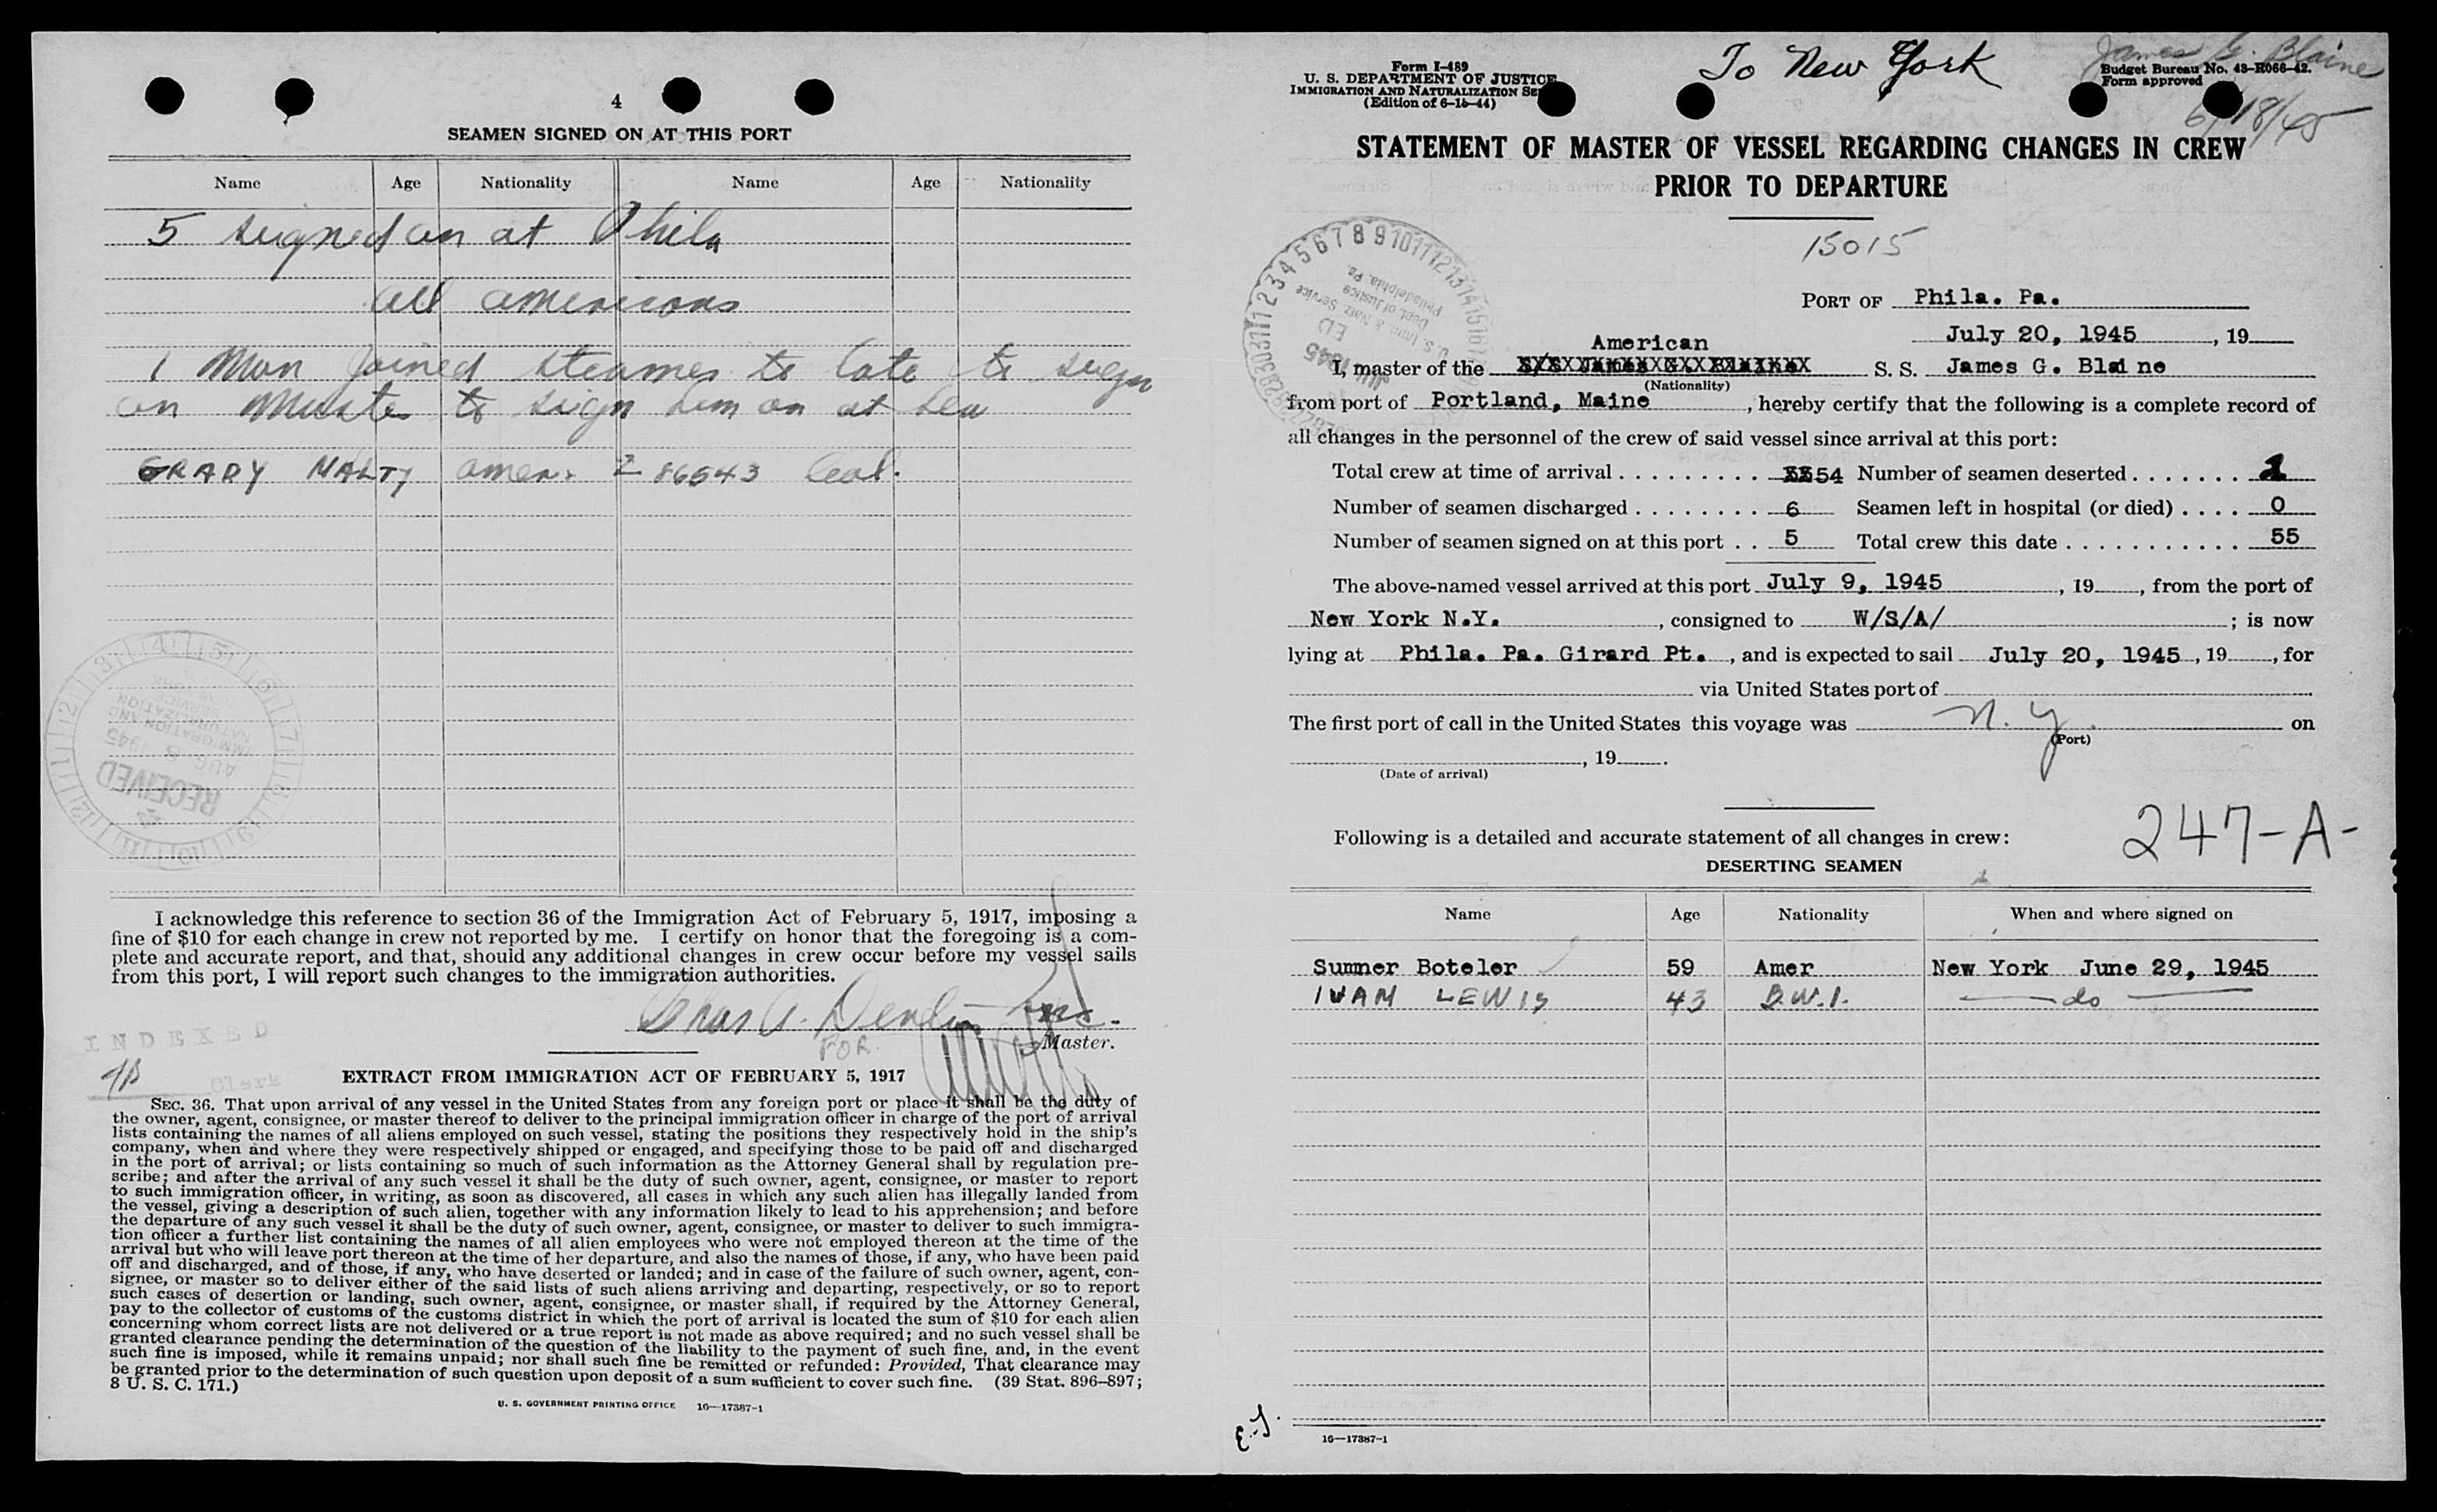 4
SEAMEN SIGNED ON AT THIS PORT
Name Age Nationality Name Age Nationality
5 signed on at Phila
all americans
1 Man joined steamer to late to sign
on Master to sign him on at sea
GRADY NALTY amer. 286543 Coal.
RECEIVED
AUG 8 1945
IMMIGRATION AND
NATURALIZATION
SERVICE
I acknowledge this reference to section 36 of the Immigration Act of February 5, 1917, imposing a
fine of $10 for each change in crew not reported by me. I certify on honor that the foregoing is a com-
plete and accurate report, and that, should any additional changes in crew occur before my vessel sails
from this port, I will report such changes to the immigration authorities.
Chas A.
FOR
Master.
INDEXED
Clerk
EXTRACT FROM IMMIGRATION ACT OF FEBRUARY 5, 1917
SEC. 36. That upon arrival of any vessel in the United States from any foreign port or place it shall be the duty of
the owner, agent, consignee, or master thereof to deliver to the principal immigration officer in charge of the port of arrival
lists containing the names of all aliens employed on such vessel, stating the positions they respectively hold in the ship's
company, when and where they were respectively shipped or engaged, and specifying those to be paid off and discharged
in the port of arrival; or lists containing so much of such information as the Attorney General shall by regulation pre-
scribe; and after the arrival of any such vessel it shall be the duty of such owner, agent, consignee, or master to report
to such immigration officer, in writing, as soon as discovered, all cases in which any such alien has illegally landed from
the vessel, giving a description of such alien, together with any information likely to lead to his apprehension; and before
the departure of any such vessel it shall be the duty of such owner, agent, consignee, or master to deliver to such immigra-
tion officer a further list containing the names of all alien employees who were not employed thereon at the time of the
arrival but who will leave port thereon at the time of her departure, and also the names of those, if any, who have been paid
off and discharged, and of those, if any, who have deserted or landed; and in case of the failure of such owner, agent, con-
signee, or master so to deliver either of the said lists of such aliens arriving and departing, respectively, or so to report
such cases of desertion or landing, such owner, agent, consignee, or master shall, if required by the Attorney General,
pay to the collector of customs of the customs district in which the port of arrival is located the sum of $10 for each alien
concerning whom correct lists are not delivered or a true report is not made as above required; and no such vessel shall be
granted clearance pending the determination of the question of the liability to the payment of such fine, and, in the event
such fine is imposed, while it remains unpaid; nor shall such fine be remitted or refunded: Provided, That clearance may
be granted prior to the determination of such question upon deposit of a sum sufficient to cover such fine. (39 Stat. 896–897;
8 U. S. C. 171.)
U. S. GOVERNMENT PRINTING OFFICE 16—17387-1
Form I-489
U. S. DEPARTMENT OF JUSTICE
IMMIGRATION AND NATURALIZATION
(Edition of 6-15-44)
To New York
James G. Blaine
Budget Bureau No. 43-R066-42.
Form approved
6/18/45
STATEMENT OF MASTER OF VESSEL REGARDING CHANGES IN CREW
PRIOR TO DEPARTURE
15015
U. S. Imm. & Natz. Service
Dept. of Justice
Philadelphia, Pa.
PORT OF Phila. Pa.
July 20, 1945, 19
American
I, master of the S. S. James G. Blaine
(Nationality)
from port of Portland, Maine, hereby certify that the following is a complete record of
all changes in the personnel of the crew of said vessel since arrival at this port:
Total crew at time of arrival 54 Number of seamen deserted 2
Number of seamen discharged 6 Seamen left in hospital (or died) 0
Number of seamen signed on at this port 5 Total crew this date 55
The above-named vessel arrived at this port July 9, 1945, 19, from the port of
New York N.Y., consigned to W/S/A/; is now
lying at Phila. Pa. Girard Pt., and is expected to sail July 20, 1945, 19, for
via United States port of
The first port of call in the United States this voyage was N.Y. on
(Port)
, 19.
(Date of arrival)
247-A-
Following is a detailed and accurate statement of all changes in crew:
DESERTING SEAMEN
Name Age Nationality When and where signed on
Sumner Boteler 59 Amer New York June 29, 1945
IVAM LEWIS 43 B.W.I. do
16—17387-1